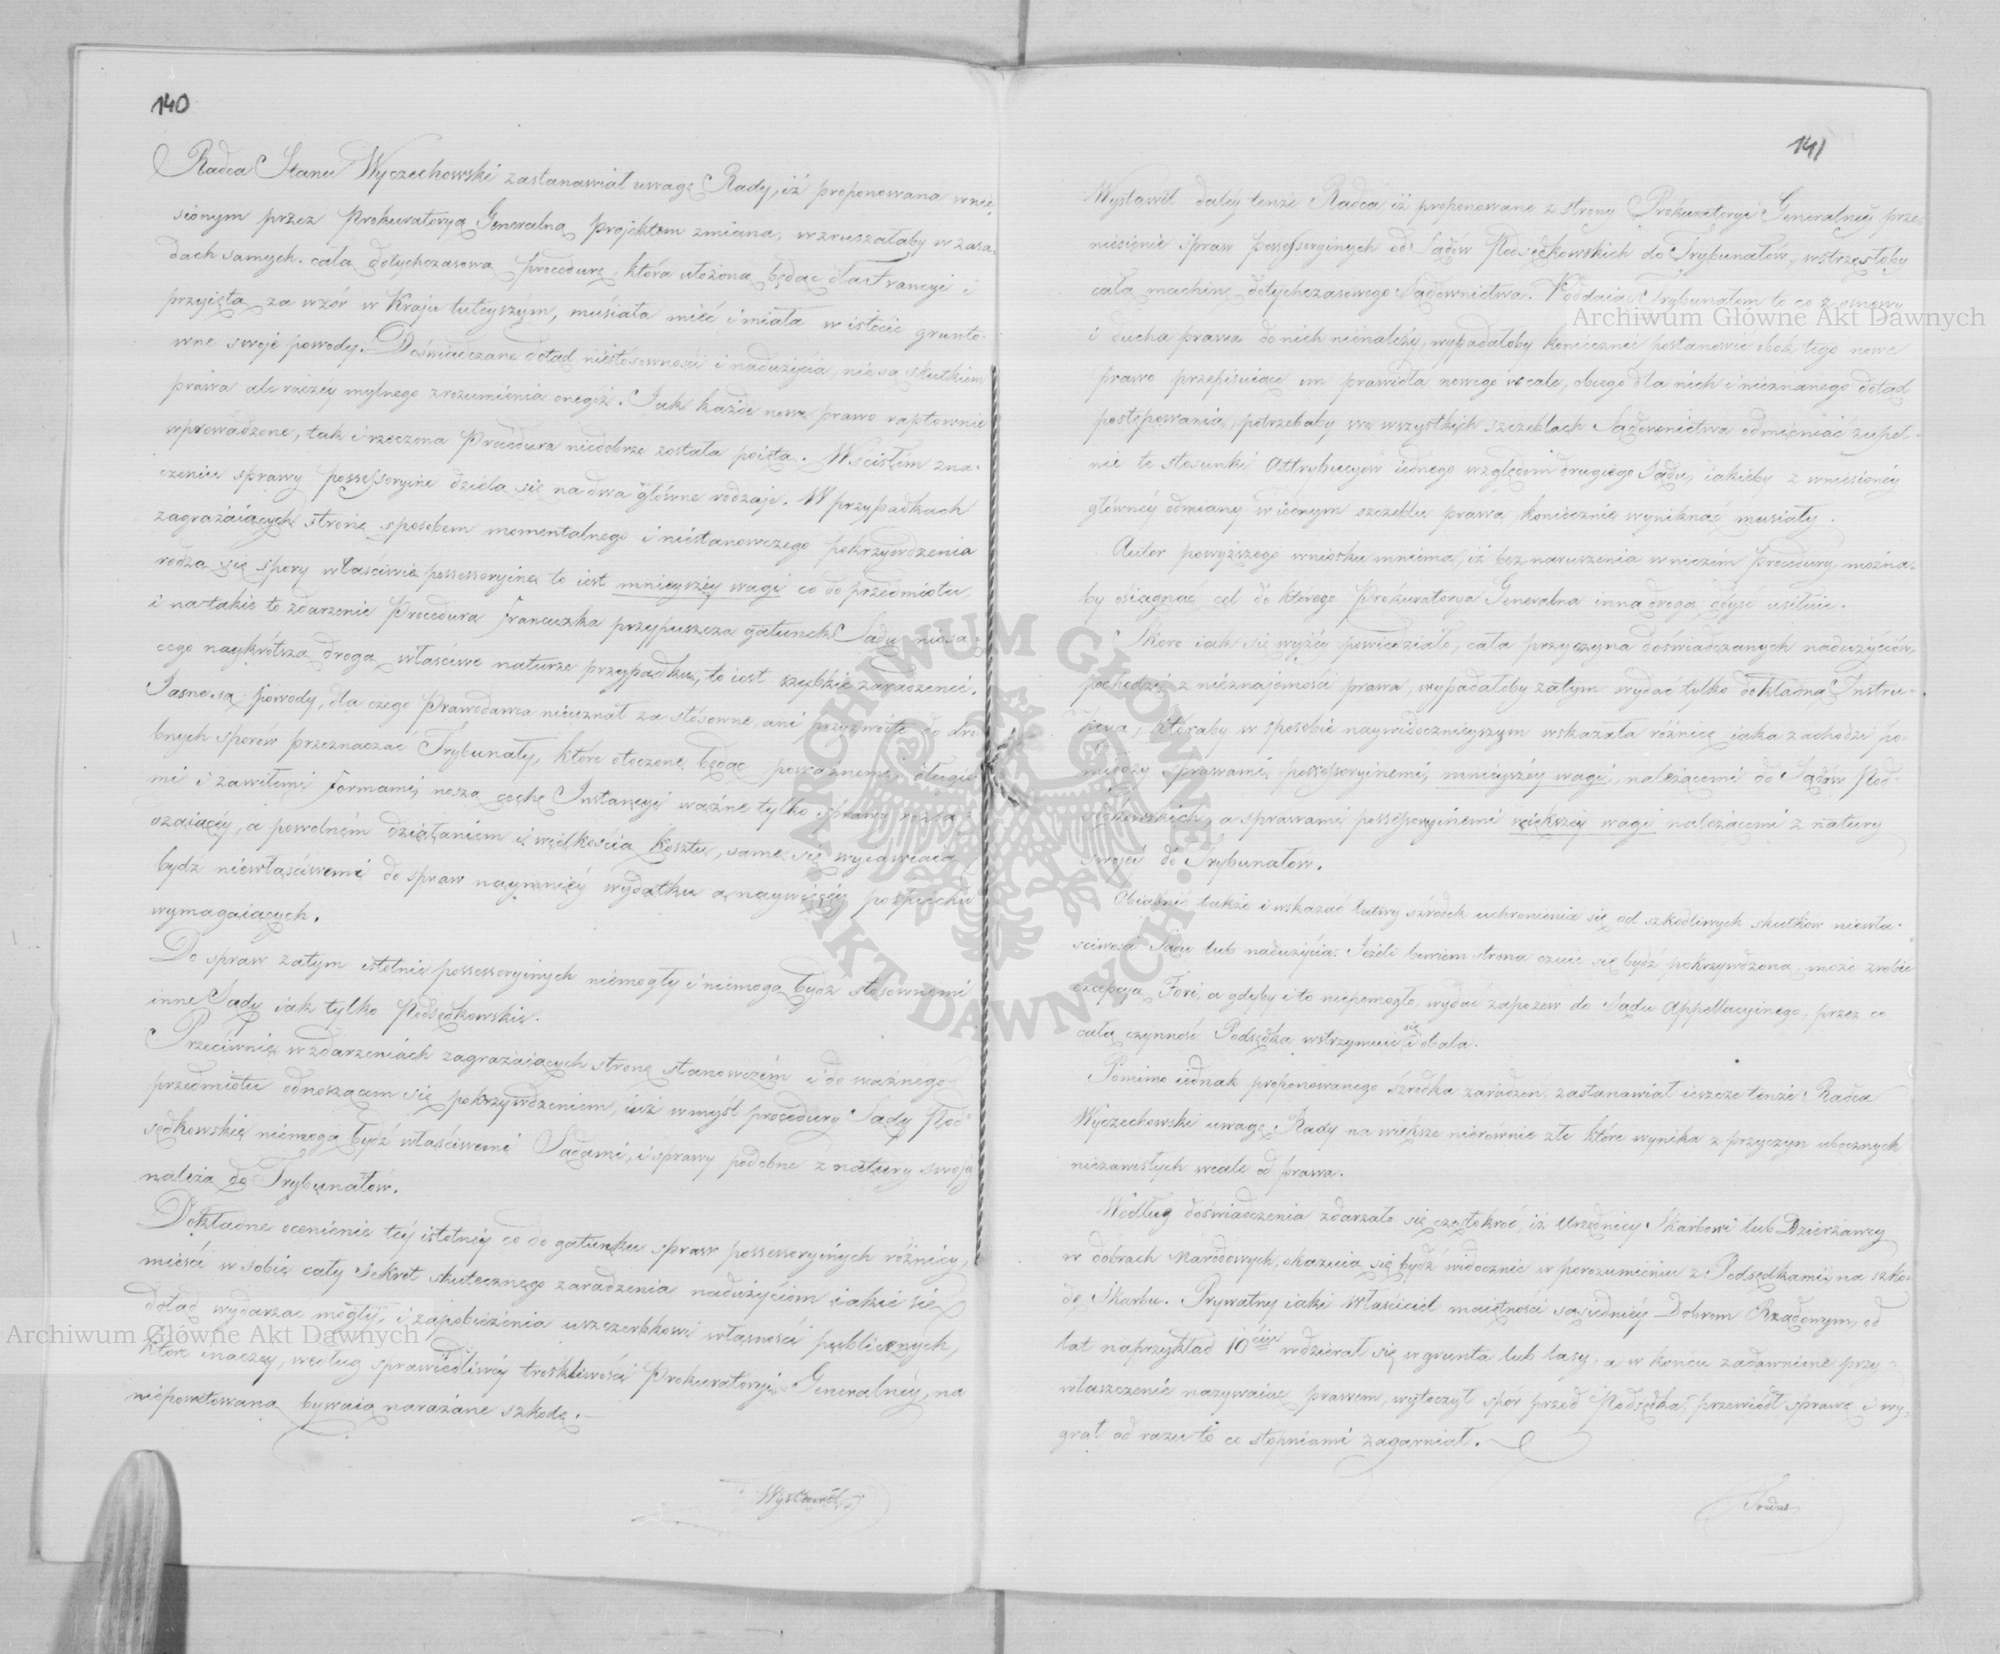 140
Radca Stanu Wyczechowski zastanawiał uwagę Rady, iż proponowana wnie-
sionym przez Prokuratoryą Generalną projektem zmiana, wzruszałaby w zasa-
dach samych. cała dotychczasowa procedurę, która ułożoną będąc dla Francyi i
przyięta za wzór w Kraju tuteyszym, musiała mieć i miała w istocie grunto-
wne swoje powody. Doświadczane dotąd niestosowności i nadużycia, nie są skutkiem
prawa ale raczéy mylnego zrozumienia onegóż. Jak każde nowe prawo raptownie
wprowadzone, tak i rzeczona Procedura niedobrze została poięta. W ścisłém zna-
czeniu sprawy possessoryine dzielą się na dwa główne rodzaje. W przypadkach
zagrażaiących stronę sposobem momentalnego i niestanowczego pokrzywdzenia
rodzą się spory właściwie possessoryine to iest mnieyszéy wagi co do przedmiotu,
i na takie to zdarzenie Procedura Francuzka przypuszcza gatunek Sądu niosą-
cego naykrótszą drogą właściwe naturze przypadku, to iest szybkie zaradzenie.
Jasne są powody, dla czego Prawodawca nieuznał za stósowne, ani przyzwoite do dro-
bnych sporów przeznaczać Trybunały, które otoczone będąc poważnemi, długie-
mi i zawiłemi formami, noszą cechę Instancyi ważne tylko sprawy rozsą-
dzaiącéy, a powolném działaniem i wielkością kosztu, same się wydawaią
bydź niewłaściwemi do spraw naymniéy wydatku a naywięcéy pośpiechu
wymagaiących.
Do spraw zatym istotnie possessoryinych niemogły i niemogą bydź stosownemi
inne Sądy iak tylko Podsędkowskie.
Przeciwnie w zdarzeniach zagrażaiących stronę stanowczém i do ważnego
przedmiotu odnoszącem się pokrzywdzeniem, iuż w myśl procedury Sądy Pod-
sędkowskie niemogą bydź właściwemi Sądami, i sprawy podobne z natury swojéj
należą do Trybunałów.
Dokładne ocenienie téy istotnéy co do gatunku spraw possessoryinych różnicy,
mieści w sobie cały sekret skutecznego zaradzenia nadużyciom iakie się
dotąd wydarzać mogły, i zapobieżenia uszczerbkowi własności publicznych,
które inaczey, według sprawiedliwéy troskliwości Prokuratoryi Generalnéy, na
niepowetowaną bywaią narażane szkodę.
Wystawił
141
Wystawił daléy tenże Radca iż proponowane z strony Prokuratoryi Generalnéy prze-
niesienie spraw possessoryinych od Sądów Podsędkowskich do Trybunałów, wstrzęsłoby
całą machinę dotychczasowego Sądownictwa. Poddaiąc Trybunałom to co z osnowy
i ducha prawa do nich nienależy, wypadałoby koniecznie postanowić obok tego nowe
prawo przepisuiące im prawidła nowego wcale, obcego dla nich i nieznanego dotąd
postępowania, potrzebaby we wszystkich szczeblach Sądownictwa odmieniać zupeł-
nie te stosunki Attrybucyów iednego względem drugiego Sądu, iakieby z wniesionéy
głównéy odmiany w iednym szczeblu prawa, koniecznie wyniknąć musiały.
Autor powyższego wniosku mniema, iż bez naruszenia w niczém Procedury, można-
by osiągnąć cel do którego Prokuratorya Generalna inną drogą dążyć usiłuie.
Skoro iak się wyżéy powiedziało, cała przyczyna doświadczanych nadużyciów
pochodzi z nieznajomości prawa, wypadałoby zatym wydać tylko dokładną Instru-
kcyą, któraby w sposobie naywidocznieyszym wskazała różnicę iaka zachodzi po-
między sprawami possessoryinemi, mnieyszéy wagi, należącemi do Sądów Pod-
sędkowskich, a sprawami possessoryinemi większéy wagi należącemi z natury
swojéi do Trybunałów.
Obiaśnić także i wskazać łatwy szrodek uchronienia się od szkodliwych skutków niewła-
sciwości Sądu lub nadużycia. Jeżeli bowiem strona czuie się bydź pokrzywdzoną, może zrobić
excepcyą Fori, a gdyby i to niepomogło, wydać zapozew do Sądu Appellacyinego, przez co
cała czynność Podsędka wstrzymuie się i obala.
Pomimo iednak proponowanego szrodka zaradzen. zastanawiał ieszcze tenże Radca
Wyczechowski uwagę Rady na większe nierównie złe które wynika z przyczyn ubocznych
niezawisłych wcale od prawa.
Według doświadczenia zdarzało się częstokroć, iż Urzędnicy Skarbowi lub Dzierżawcy
w dobrach Narodowych, okazuią się bydź widocznie w porozumieniu z Podsędkami, na szko-
dę Skarbu. Prywatny iaki Właściciel maiętności sąsiedniéy Dobrom Rządowym, od
lat naprzykład 10ciu wdzierał się w grunta lub lasy, a w końcu zadawnione przy-
właszczenie nazywaiąc prawem, wytoczył spór przed Podsędka, przewiódł sprawę i wy-
grał od razu to co stopniami zagarniał.
Archiwum Główne Akt Dawnych
Archiwum Główne Akt Dawnych
ARCHIWUM GŁÓWNE AKT DAWNYCH